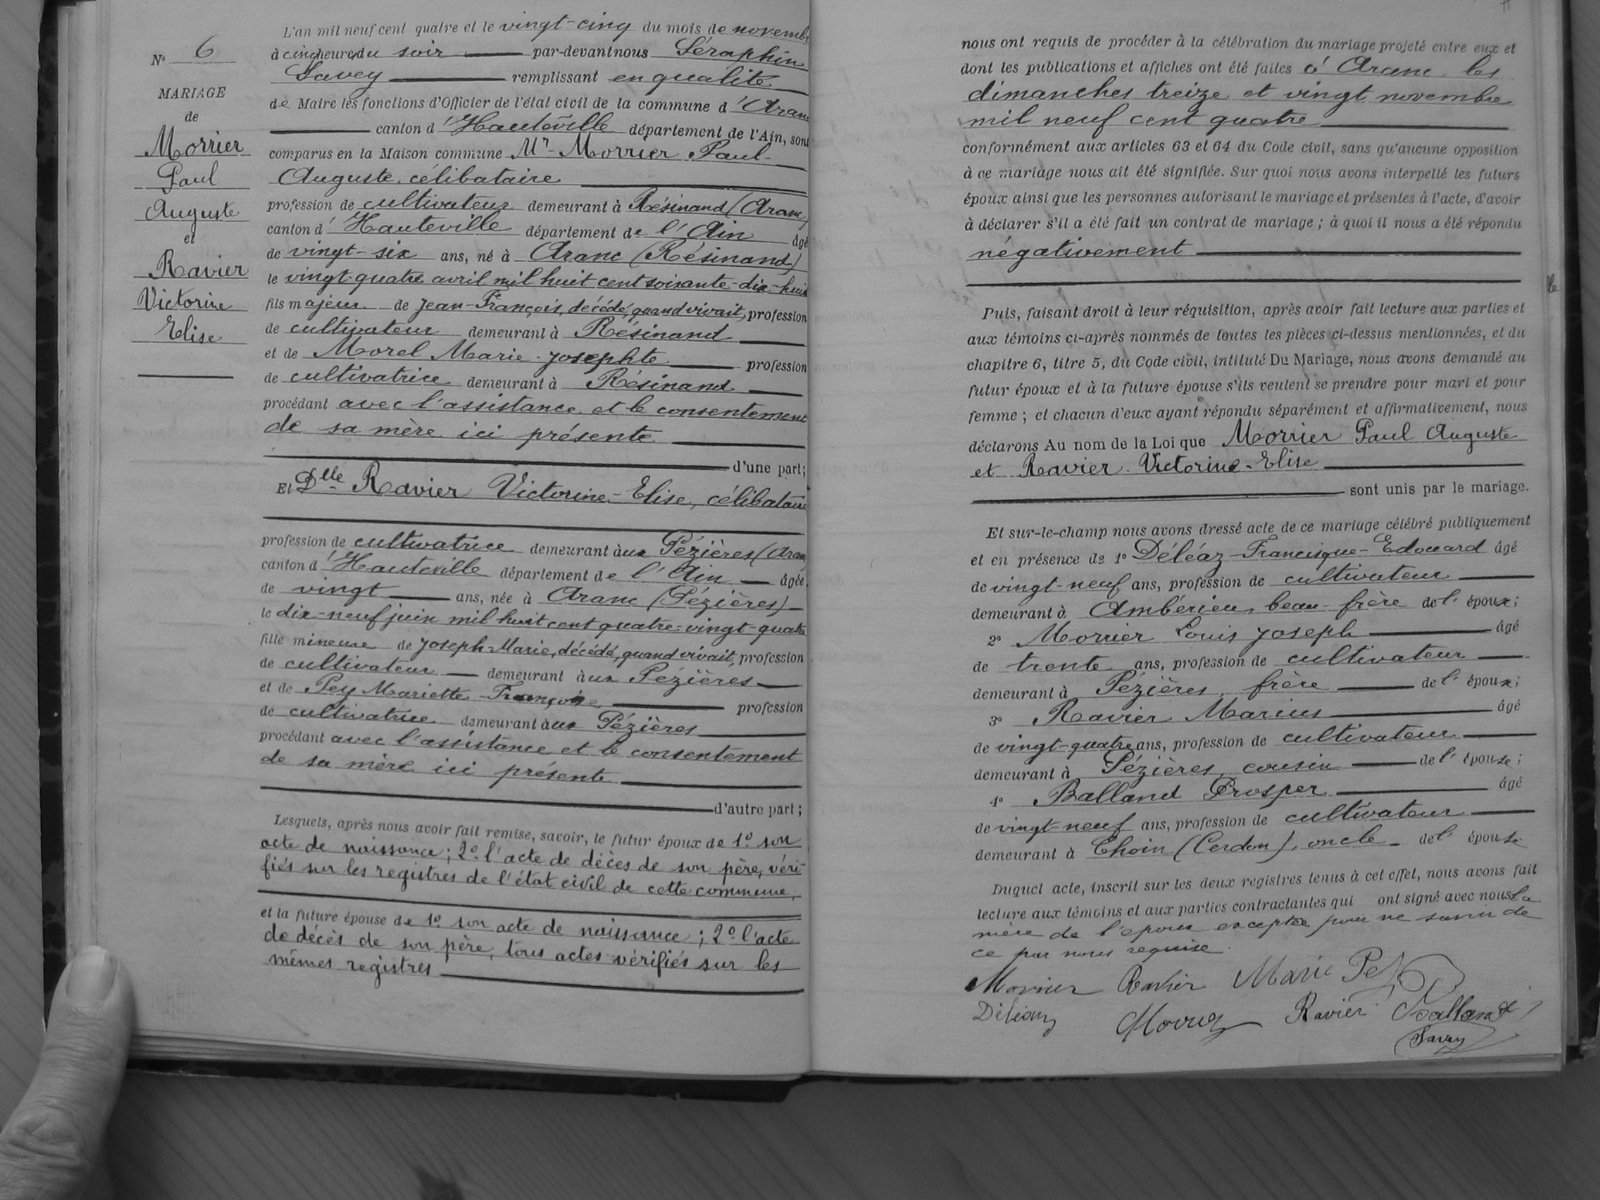 N° 6
MARIAGE
de
Morrier
Paul
Auguste
et
Ravier
Victorine
Elise
L'an mil neuf cent quatre et le vingt-cinq du mois de novemb
à cinq heures du soir par-devant nous Séraphin
Savey remplissant en qualité
de Maire les fonctions d'Officier de l'état civil de la commune d'Aranc
canton d'Hauteville département de l'Ain, sont
comparus en la Maison commune Mr Morrier Paul-
Auguste, célibataire
profession de cultivateur demeurant à Résinand (Aranc)
canton d'Hauteville département de l'Ain âgé
de vingt-six ans, né à Aranc (Résinand)
le vingt quatre avril mil huit cent soixante-dix-huit
fils majeur de Jean-François, décédé, quand vivait, profession
de cultivateur demeurant à Résinand
et de Morel Marie-Josephte profession
de cultivatrice demeurant à Résinand
procédant avec l'assistance et le consentement
de sa mère ici présente
d'une part;
Et Delle Ravier Victorine-Elise, célibataire
profession de cultivatrice demeurant aux Pézières (Aran
canton d'Hauteville département de l'Ain âgée
de vingt ans, née à Aranc (Pézières)
le dix-neuf juin mil huit cent quatre-vingt-quatre
fille mineure de Joseph-Marie, décédé, quand vivait, profession
de cultivateur demeurant aux Pezières
et de Pey Mariette-Françoise profession
de cultivatrice demeurant aux Pézières
procédant avec l'assistance et le consentement
de sa mère ici présente
d'autre part;
Lesquels, après nous avoir fait remise, savoir, le futur époux de 1° son
acte de naissance; 2° l'acte de décès de son père, véri-
fiés sur les registres de l'état civil de cette commune,
et la future épouse de 1° son acte de naissance; 2° l'acte
de décès de son père, tous actes vérifiés sur les
mêmes registres
nous ont requis de procéder à la célébration du mariage projeté entre eux et
dont les publications et affiches ont été faites à Aranc les
dimanches treize et vingt novembre
mil neuf cent quatre
conformément aux articles 63 et 64 du Code civil, sans qu'aucune opposition
à ce mariage nous ait été signifiée. Sur quoi nous avons interpellé les futurs
époux ainsi que les personnes autorisant le mariage et présentes à l'acte, d'avoir
à déclarer s'il a été fait un contrat de mariage; à quoi il nous a été répondu
négativement
Puis, faisant droit à leur réquisition, après avoir fait lecture aux parties et
aux témoins ci-après nommés de toutes les pièces ci-dessus mentionnées, et du
chapitre 6, titre 5, du Code civil, intitulé Du Mariage, nous avons demandé au
futur époux et à la future épouse s'ils veulent se prendre pour mari et pour
femme; et chacun d'eux ayant répondu séparément et affirmativement, nous
déclarons Au nom de la Loi que Morrier Paul Auguste
et Ravier Victorine-Elise
sont unis par le mariage.
Et sur-le-champ nous avons dressé acte de ce mariage célébré publiquement
et en présence de 1° Déléaz-Francisque-Edouard âgé
de vingt-neuf ans, profession de cultivateur
demeurant à Ambérieu, beau-frère de l'époux;
2° Morrier Louis Joseph âgé
de trente ans, profession de cultivateur
demeurant à Pézières, frère de l'époux;
3° Ravier Marius âgé
de vingt-quatre ans, profession de cultivateur
demeurant à Pézières, cousin de l'épouse;
4° Balland Prosper âgé
de vingt-neuf ans, profession de cultivateur
demeurant à Choin (Cerdon), oncle de l'épouse
Duquel acte, inscrit sur les deux registres tenus à cet effet, nous avons fait
lecture aux témoins et aux parties contractantes qui ont signé avec nous la
mère de l'époux exceptée pour ne savoir de
ce par nous requise.
Morrier Ravier Marie Pey
Déléaz Morrier Ravier Balland
Savey